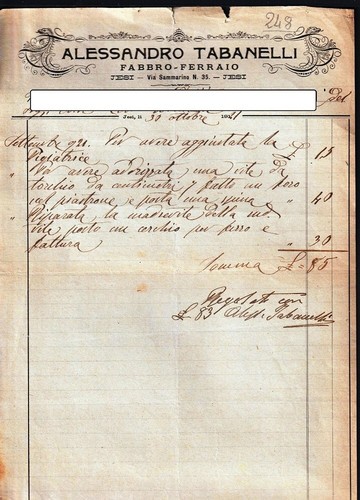 248
ALESSANDRO TABANELLI
FABBRO-FERRAIO
JESI — Via Sammarino N. 35. — JESI
Del
Jesi, li 30 ottobre 1921
Settembre 921. Per avere aggiustata la
£ 15
Per avere adrizzata una vite da
torchio da centimetri 7 fatto un foro
sul piastrone e posta una spina
" 40
" Riparata la madrevite della
vite posto un cerchio per ferro e
fattura
" 30
Somma £ = 85
Regolato con
£ 83 Aless. Tabanelli